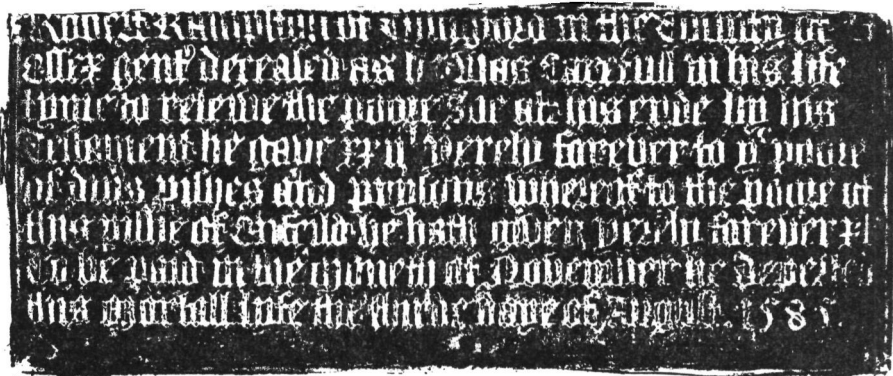 Robert Rampston of Chingford in the County of
Essex gent deceased as he was Carefull in his life
tyme to releive the poore Soe at his ende by his
Testement he gave xxijˡ yerely forever to yᵉ poore
of divers pishes and prysons wherof to the poore of
this pishe of Enfeild he hath given yerely forever xl
To be paid in the moneth of November he departed
this mortall Lyfe the third daye of August 1585